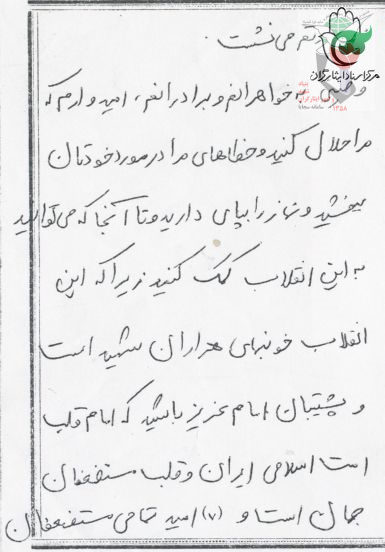 تقر می‌نشست.
مرکز اسناد ایثارگران
و حتی به خواهرانم و برادرانم، امیدوارم که
مرا حلال کنید و خطاهای مرا در مورد خودتان
ببخشید و نماز را بپای دارید و تا آنجا که می‌توانید
به این انقلاب کمک کنید زیرا که این
انقلاب خونبهای هزاران شهید است
و پشتیبان امام عزیز باشید که امام قلب
امت اسلامی ایران و قلب مستضعفان
جهان است و (۷) امید تمامی مستضعفان